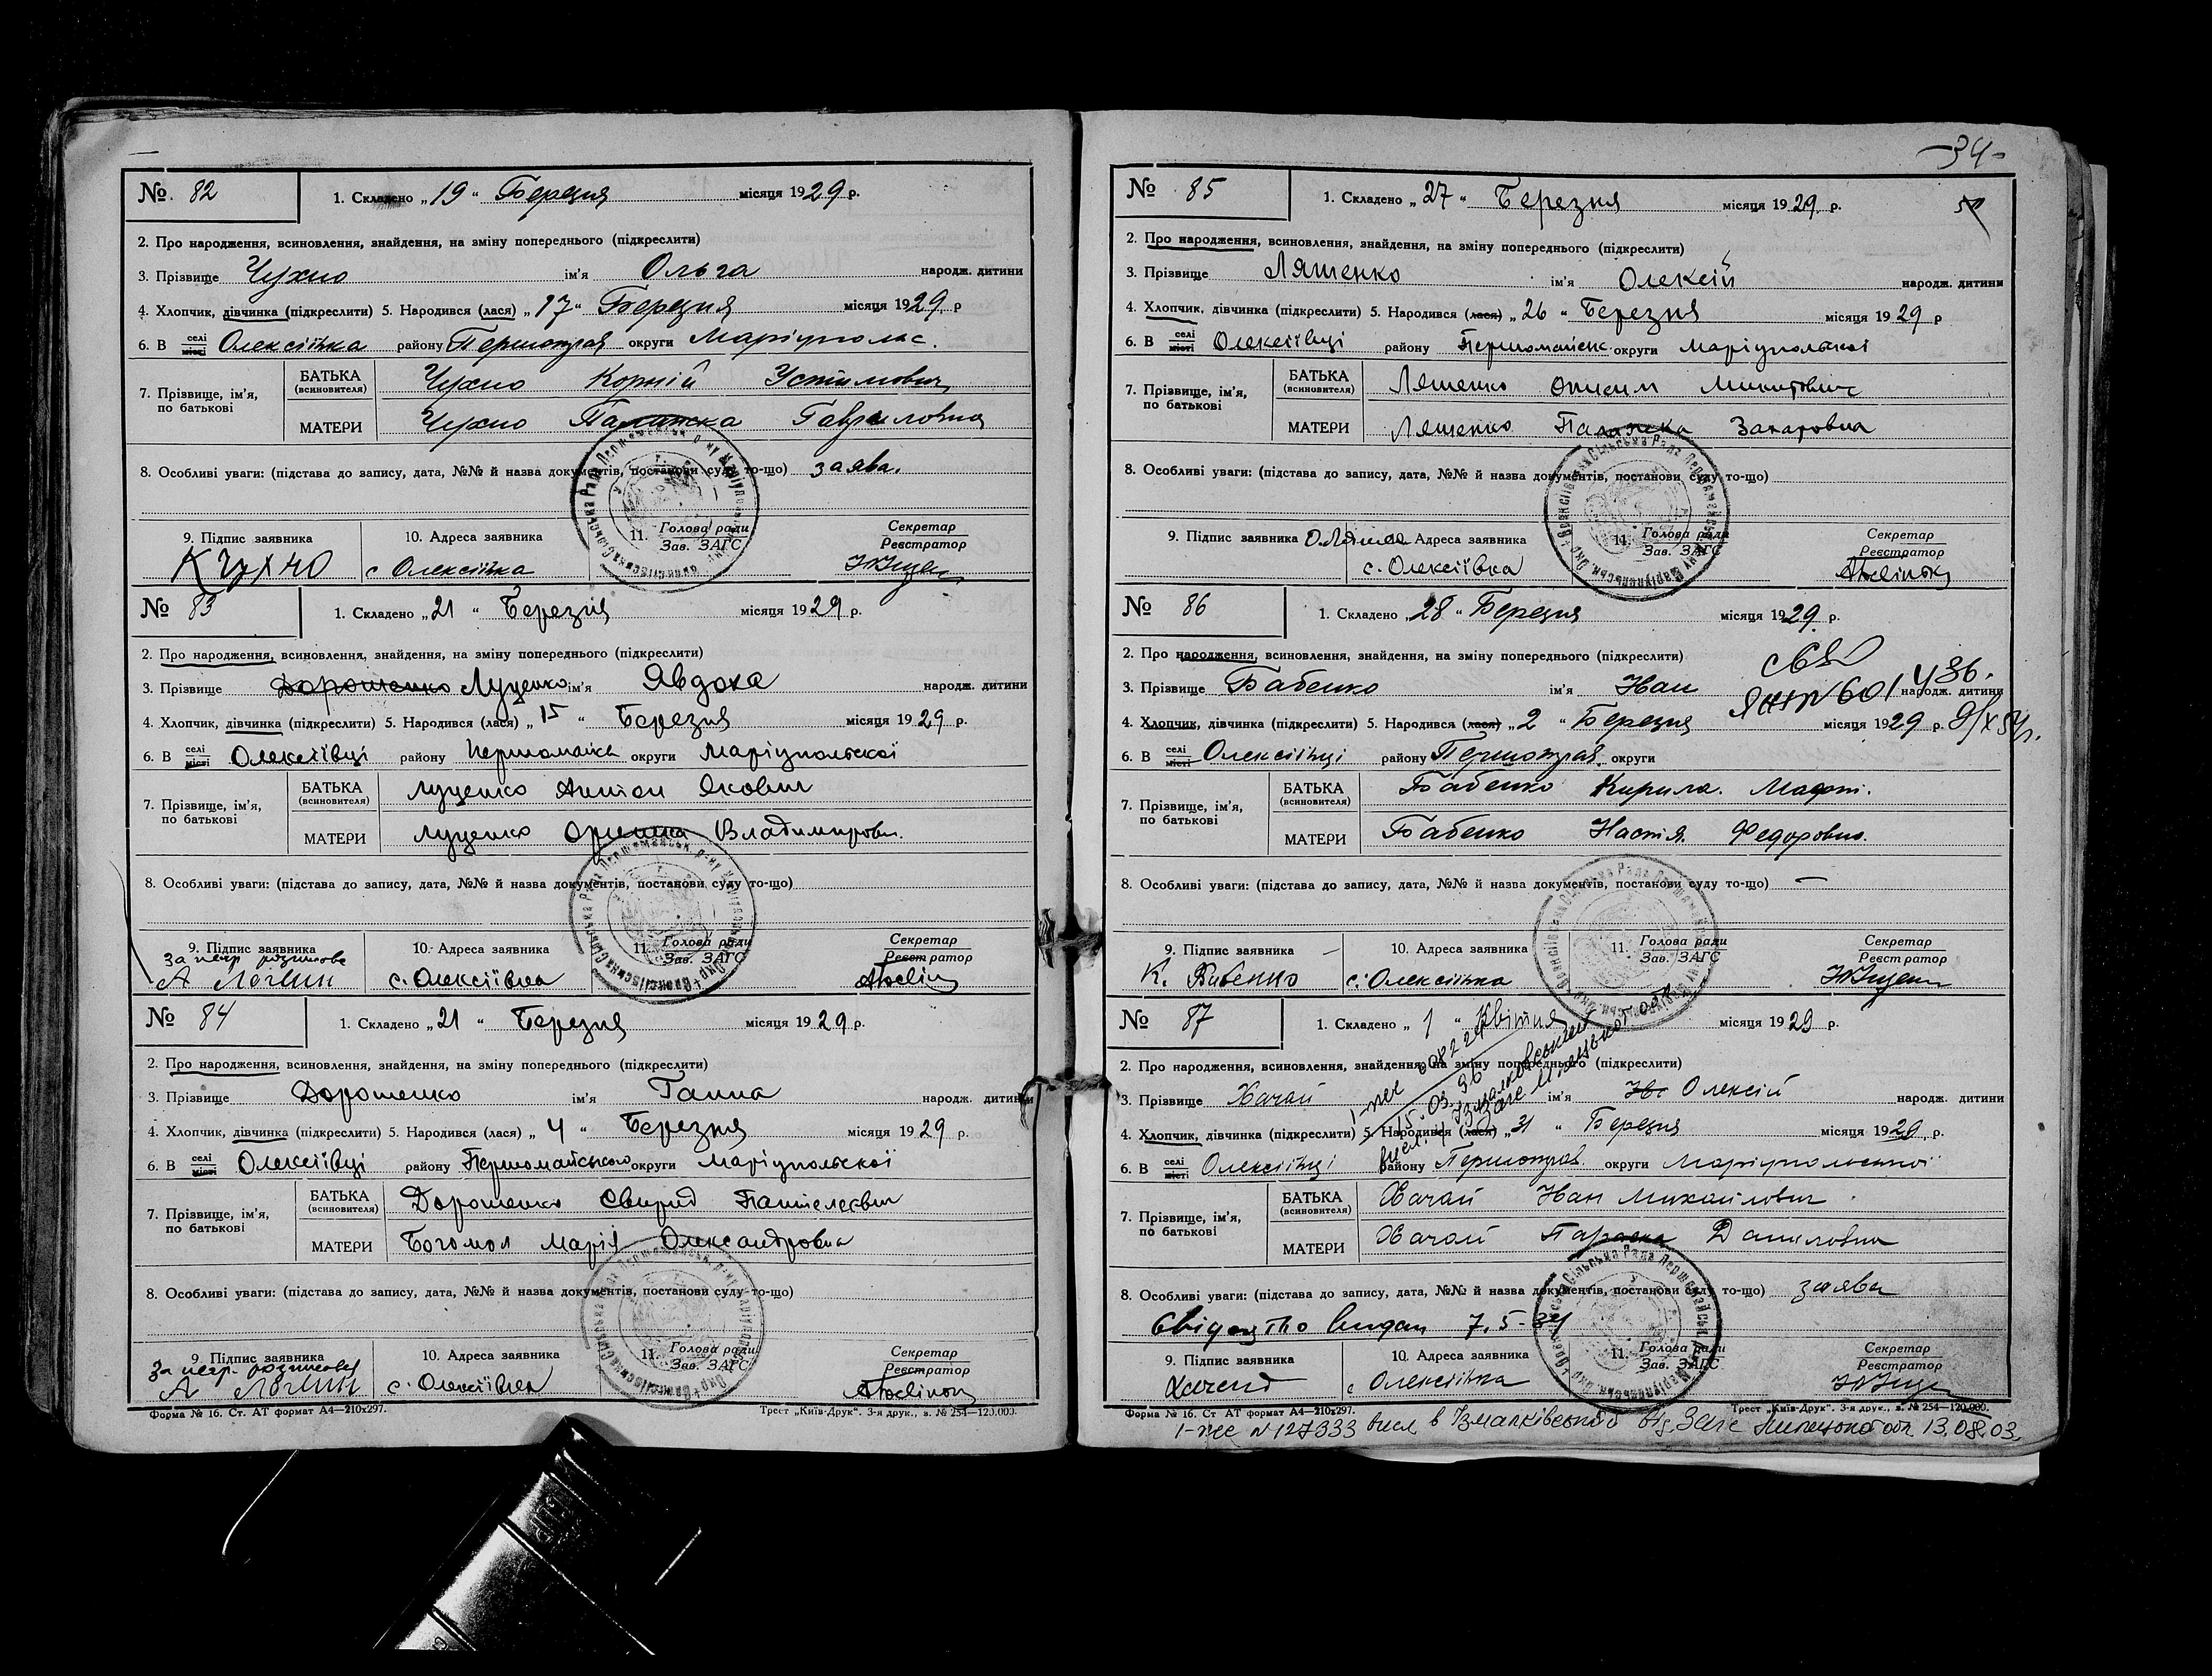 № 82
1. Складено „19“ Березня місяця 1929 р.
2. Про народження, всиновлення, знайдення, на зміну попереднього (підкреслити)
3. Прізвище Чухно ім'я Ольга народж. дитини
4. Хлопчик, дівчинка (підкреслити) 5. Народився (лася) „17“ Березня місяця 1929 р
6. В селі місті Олексіївка району Першотрав округи Маріупольс.
7. Прізвище, ім'я, по батькові
БАТЬКА (всиновителя) Чухно Корній Устимович
МАТЕРИ Чухно Палажка Гавриловна
8. Особливі уваги: (підстава до запису, дата, №№ й назва документів, постанови суду то-що) заява.
9. Підпис заявника 10. Адреса заявника 11. Голова ради Зав. ЗАГС Секретар Реєстратор
К Чухно с Олексіївка
№ 83
1. Складено „21“ Березня місяця 1929 р.
2. Про народження, всиновлення, знайдення, на зміну попереднього (підкреслити)
3. Прізвище Дорошенко Луценко ім'я Явдоха народж. дитини
4. Хлопчик, дівчинка (підкреслити) 5. Народився (лася) „15“ Березня місяця 1929 р.
6. В селі місті Олексіївці району округи Маріупольської
7. Прізвище, ім'я, по батькові
БАТЬКА (всиновителя) Луценко Антон Якович
МАТЕРИ Луценко Оришка Владимировн.
8. Особливі уваги: (підстава до запису, дата, №№ й назва документів, постанови суду то-що)
9. Підпис заявника 10. Адреса заявника 11. Голова ради Зав. ЗАГС Секретар Реєстратор
за негр розписався
с. Олексіївка
№ 84
1. Складено „21“ Березня місяця 1929 р.
2. Про народження, всиновлення, знайдення, на зміну попереднього (підкреслити)
3. Прізвище Дорошенко ім'я Ганна народж. дитини
4. Хлопчик, дівчинка (підкреслити) 5. Народився (лася) „4“ Березня місяця 1929 р.
6. В селі місті Олексіївці району Першомайського округи Маріупольської
7. Прізвище, ім'я, по батькові
БАТЬКА (всиновителя) Дорошенко Свирид Пантелеєвич
МАТЕРИ Богомол Марія Олександровна
8. Особливі уваги: (підстава до запису, дата, №№ й назва документів, постанови суду то-що)
9. Підпис заявника 10. Адреса заявника 11. Голова ради Зав. ЗАГС Секретар Реєстратор
За негр. розписався
с. Олексіївка
Форма № 16. Ст. АТ формат А4—210х297. Трест „Київ-Друк“. 3-я друк., з. № 254—120.000.
-34-
№ 85
1. Складено „27“ Березня місяця 1929 р.
2. Про народження, всиновлення, знайдення, на зміну попереднього (підкреслити)
3. Прізвище Ляшенко ім'я Олексій народж. дитини
4. Хлопчик, дівчинка (підкреслити) 5. Народився (лася) „26“ Березня місяця 1929 р
6. В селі місті Олексіївці району Першомайськ округи Маріупольської
7. Прізвище, ім'я, по батькові
БАТЬКА (всиновителя) Ляшенко Онисим Микитович
МАТЕРИ Ляшенко Палажка Захаровна
8. Особливі уваги: (підстава до запису, дата, №№ й назва документів, постанови суду то-що)
9. Підпис заявника Адреса заявника 11. Голова ради Зав. ЗАГС Секретар Реєстратор
с. Олексіївка
№ 86
1. Складено „28“ Березня місяця 1929 р.
2. Про народження, всиновлення, знайдення, на зміну попереднього (підкреслити)
3. Прізвище Бабенко ім'я Иван народж. дитини
4. Хлопчик, дівчинка (підкреслити) 5. Народився (лася) „2“ Березня місяця 1929 р.
6. В селі місті Олексіївці району Першотрав. округи
7. Прізвище, ім'я, по батькові
БАТЬКА (всиновителя) Бабенко Кирила
МАТЕРИ Бабенко Настя Федоровна.
8. Особливі уваги: (підстава до запису, дата, №№ й назва документів, постанови суду то-що) —
9. Підпис заявника 10. Адреса заявника 11. Голова ради Зав. ЗАГС Секретар Реєстратор
К. Бабенко с. Олексіївка
№ 87
1. Складено „1“ Квітня місяця 1929 р.
2. Про народження, всиновлення, знайдення, на зміну попереднього (підкреслити)
3. Прізвище Хачай ім'я Олексій народж. дитини
4. Хлопчик, дівчинка (підкреслити) 5. Народився (лася) „31“ Березня місяця 1929 р.
6. В селі місті Олексіївці району Першотрав. округи Маріупольської
7. Прізвище, ім'я, по батькові
БАТЬКА (всиновителя) Хачай Иван Михайлович
МАТЕРИ Хачай Параска Даниловна
8. Особливі уваги: (підстава до запису, дата, №№ й назва документів, постанови суду то-що) заява
Свідоцтво видан 7.5-
9. Підпис заявника 10. Адреса заявника 11. Голова ради Зав. ЗАГС Секретар Реєстратор
с Олексіївка
Форма № 16. Ст АТ формат А4—210х297. Трест „Київ-Друк“. 3-я друк., з. № 254—120.000.
13.08.03